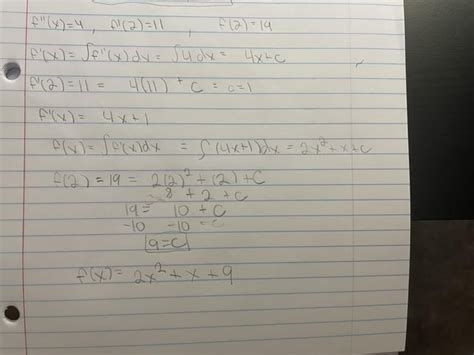 f''(x)=4, f'(2)=11, f(2)=19
f'(x)=∫f''(x)dx=∫4dx= 4x+c
f'(2)=11 = 4(11) + c = c=1
f'(x)= 4x+1
f(x)=∫f'(x)dx = ∫(4x+1)dx=2x²+x+c
f(2)=19= 2(2)²+(2)+C
8 + 2 + c
19= 10 + C
-10 -10
9=C
f(x)= 2x²+x+9